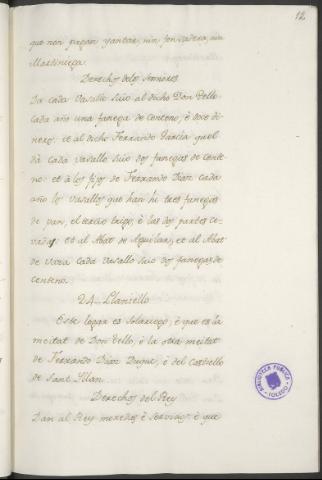 12
que non pagan yantar, nin fonsadera, nin
Martiniega.
Derechos delos Sennores
Da cada Vasallo suio al dicho Don Tello
cada año una fanega de centeno, è doce di
neros. et al dicho Ferrando Garcia quel
dà cada vasallo suio dos fanegas de cente
no. et à los fijos de Ferrando Diaz cada
año los vasallos que han hi tres fanegas
de pan, el tercio trigo, è las dos partes ce
vada. et al Abat de Aguilar, et al Abat
de cada Vasallo suio dos fanegas de
centeno.
24. Llaniello
Este logar es solariego, è que es la
meitat de Don Tello, è la otra meitat
de Ferrando Diaz Duque, è del Castiello
de Sant Illan.
Derechos del Rey
Dan al Rey monedas è servicios, è que
BIBLIOTECA PUBLICA
TOLEDO